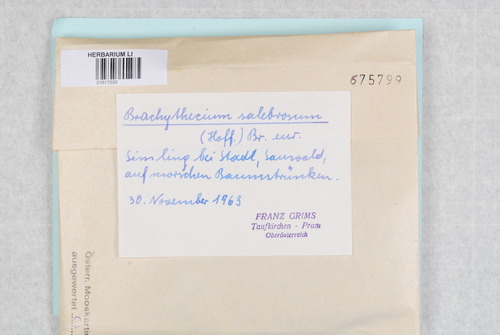 HERBARIUM LI
675799
Brachythecium salebrosum
(Hoff.) Br. eur.
Simling bei Stadl, Sauwald,
auf morschen Baumstrünken.
30. November 1963
FRANZ GRIMS
Taufkirchen - Pram
Oberösterreich
Österr. Mooskartie
ausgewertet